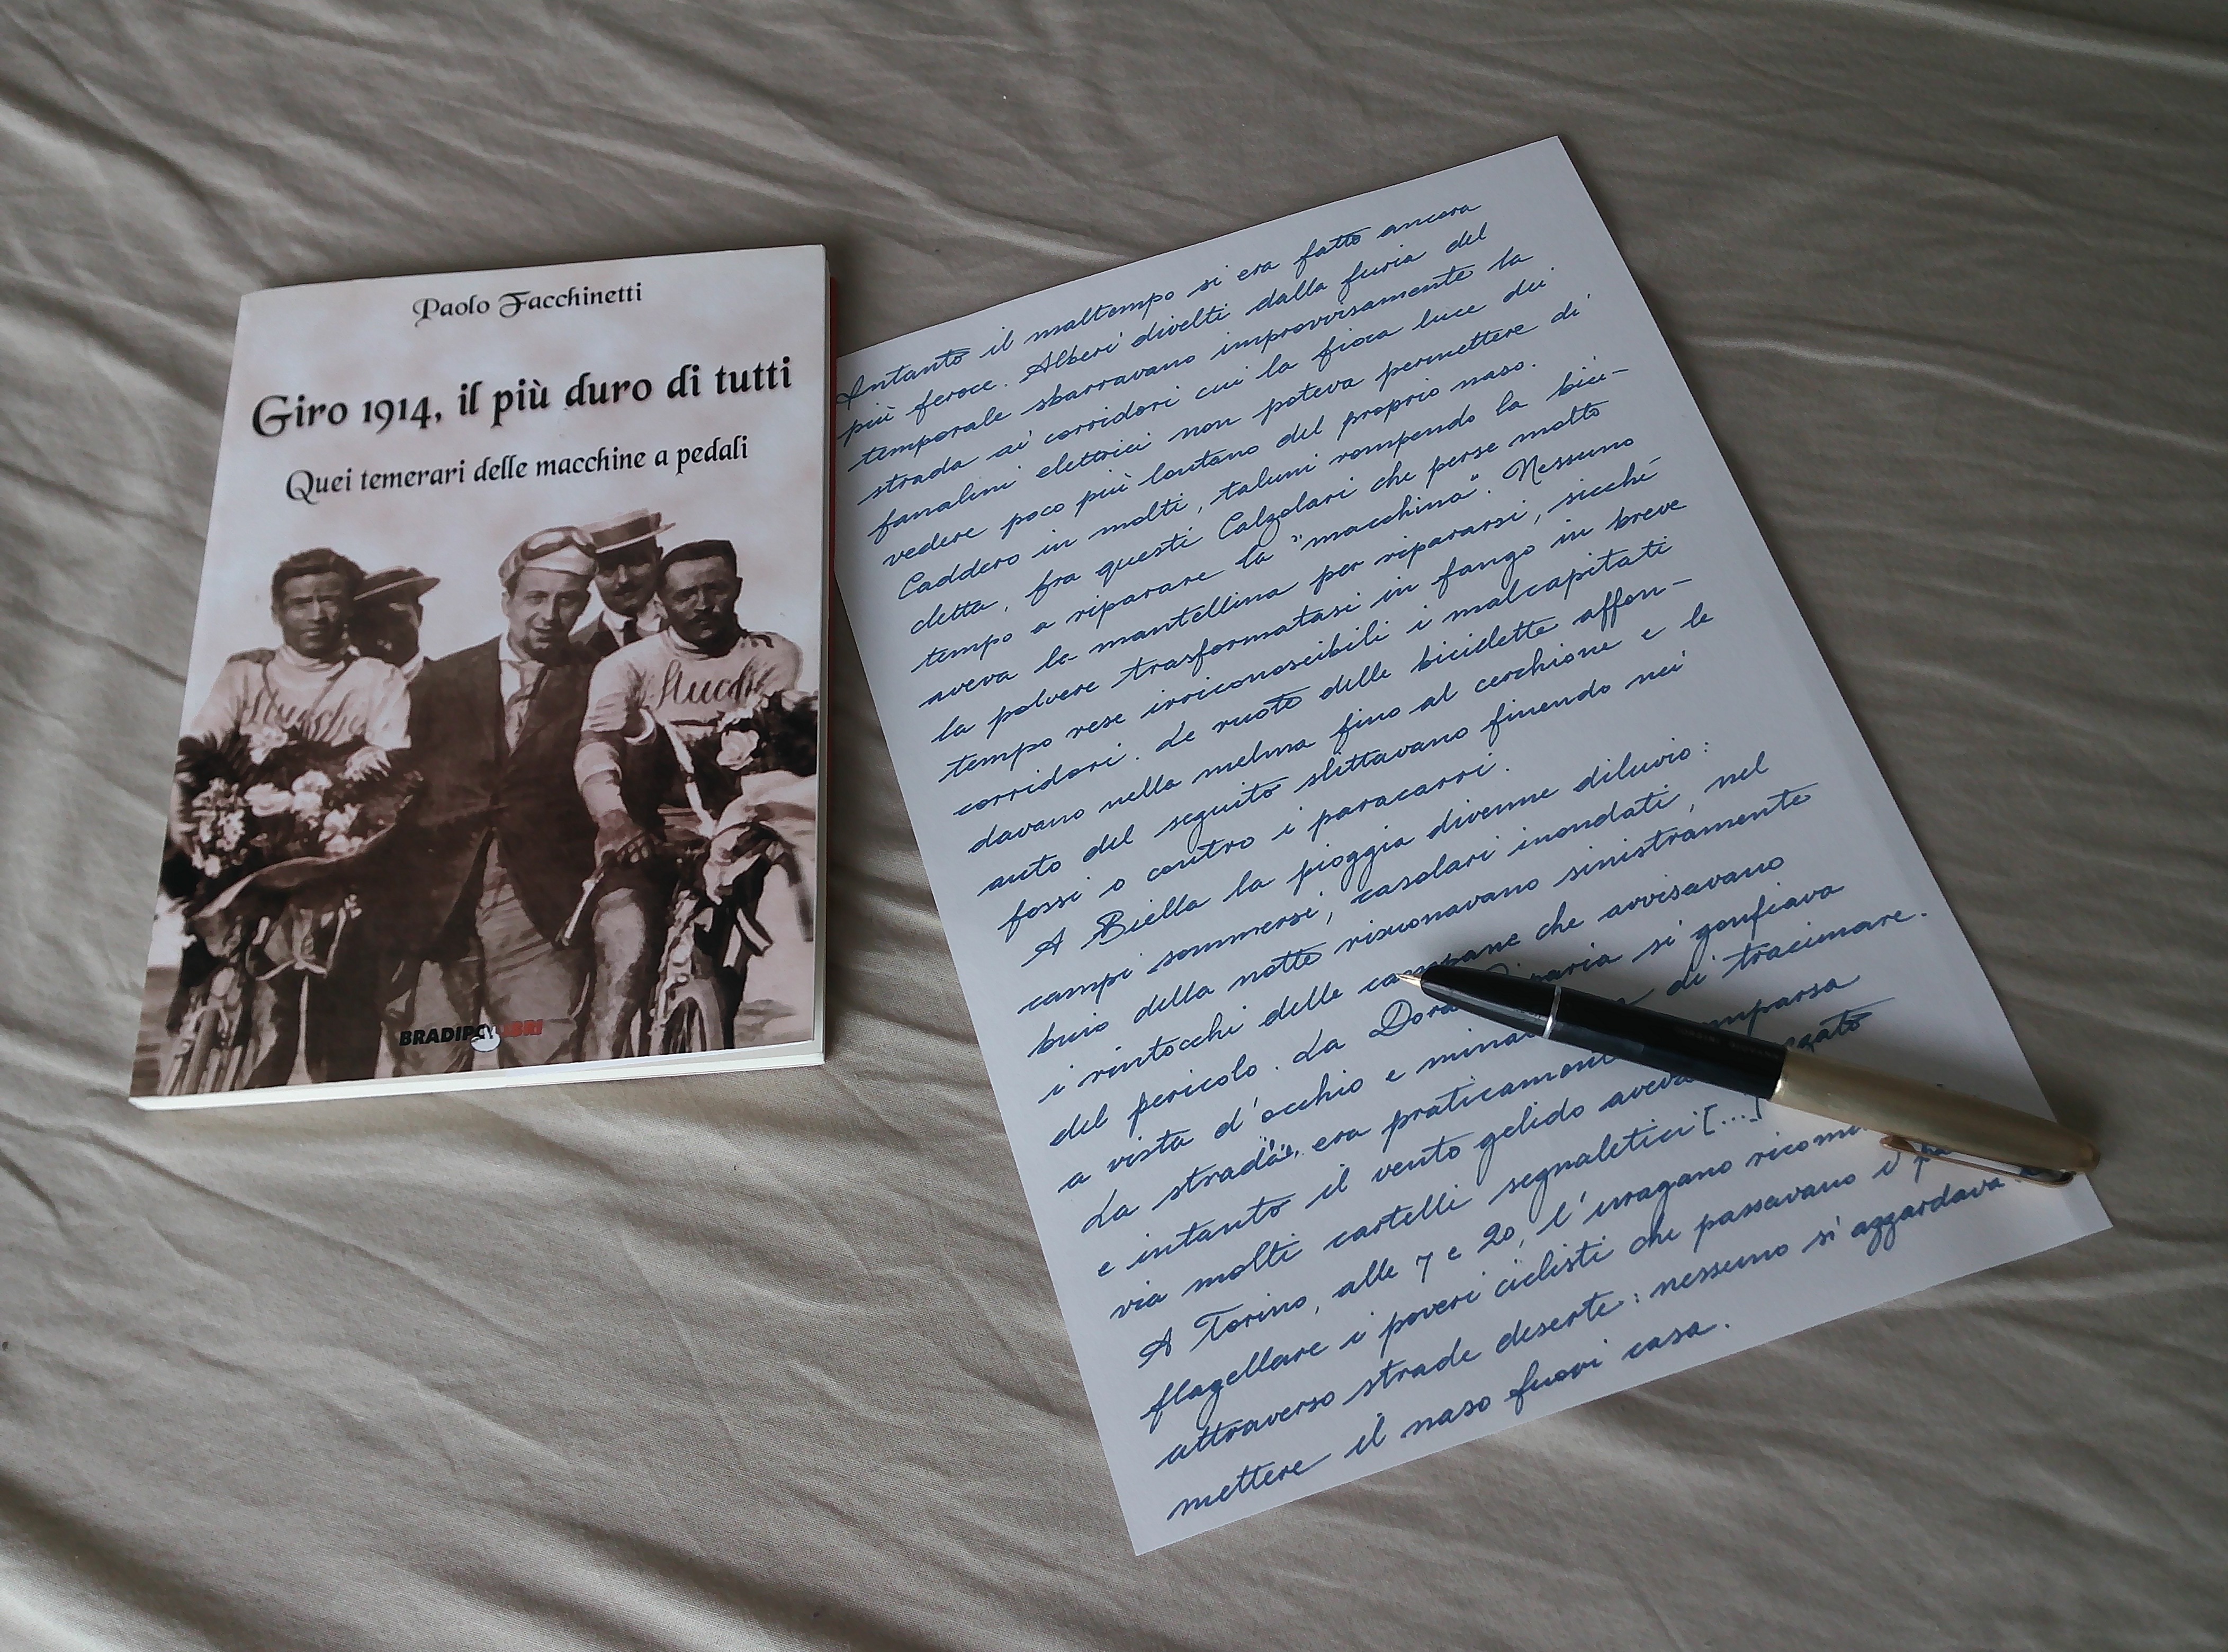 Paolo Facchinetti
Giro 1914, il più duro di tutti
Quei temerari delle macchine a pedali
Stucchi
BRADIPOLIBRI
Intanto il maltempo si era fatto ancora
più feroce. Alberi divelti dalla furia del
temporale sbarravano improvvisamente la
strada ai corridori cui la fioca luce dei
fanalini elettrici non poteva permettere di
vedere poco più lontano del proprio naso.
Caddero in molti, taluni rompendo la bici-
cletta, fra questi Calzolari che perse molto
tempo a riparare la "macchina". Nessuno
aveva la mantellina per ripararsi, sicché
la polvere trasformatasi in fango in breve
tempo rese irriconoscibili i malcapitati
corridori. Le ruote delle biciclette affon-
davano nella melma fino al cerchione e le
auto del seguito slittavano finendo nei
fossi o contro i paracarri.
A Biella la pioggia divenne diluvio:
campi sommersi, casolari inondati, nel
buio della notte risuonavano sinistramente
i rintocchi delle campane che avvisavano
del pericolo. La Dora Riparia si gonfiava
a vista d'occhio e di tracimare.
La strada, era praticamente
e intanto il vento gelido aveva
via molti cartelli segnaletici [...]
A Torino, alle 7 e 20, l'uragano
flagellare i poveri ciclisti che passavano i
attraverso strade deserte: nessuno si azzardava
mettere il naso fuori casa.